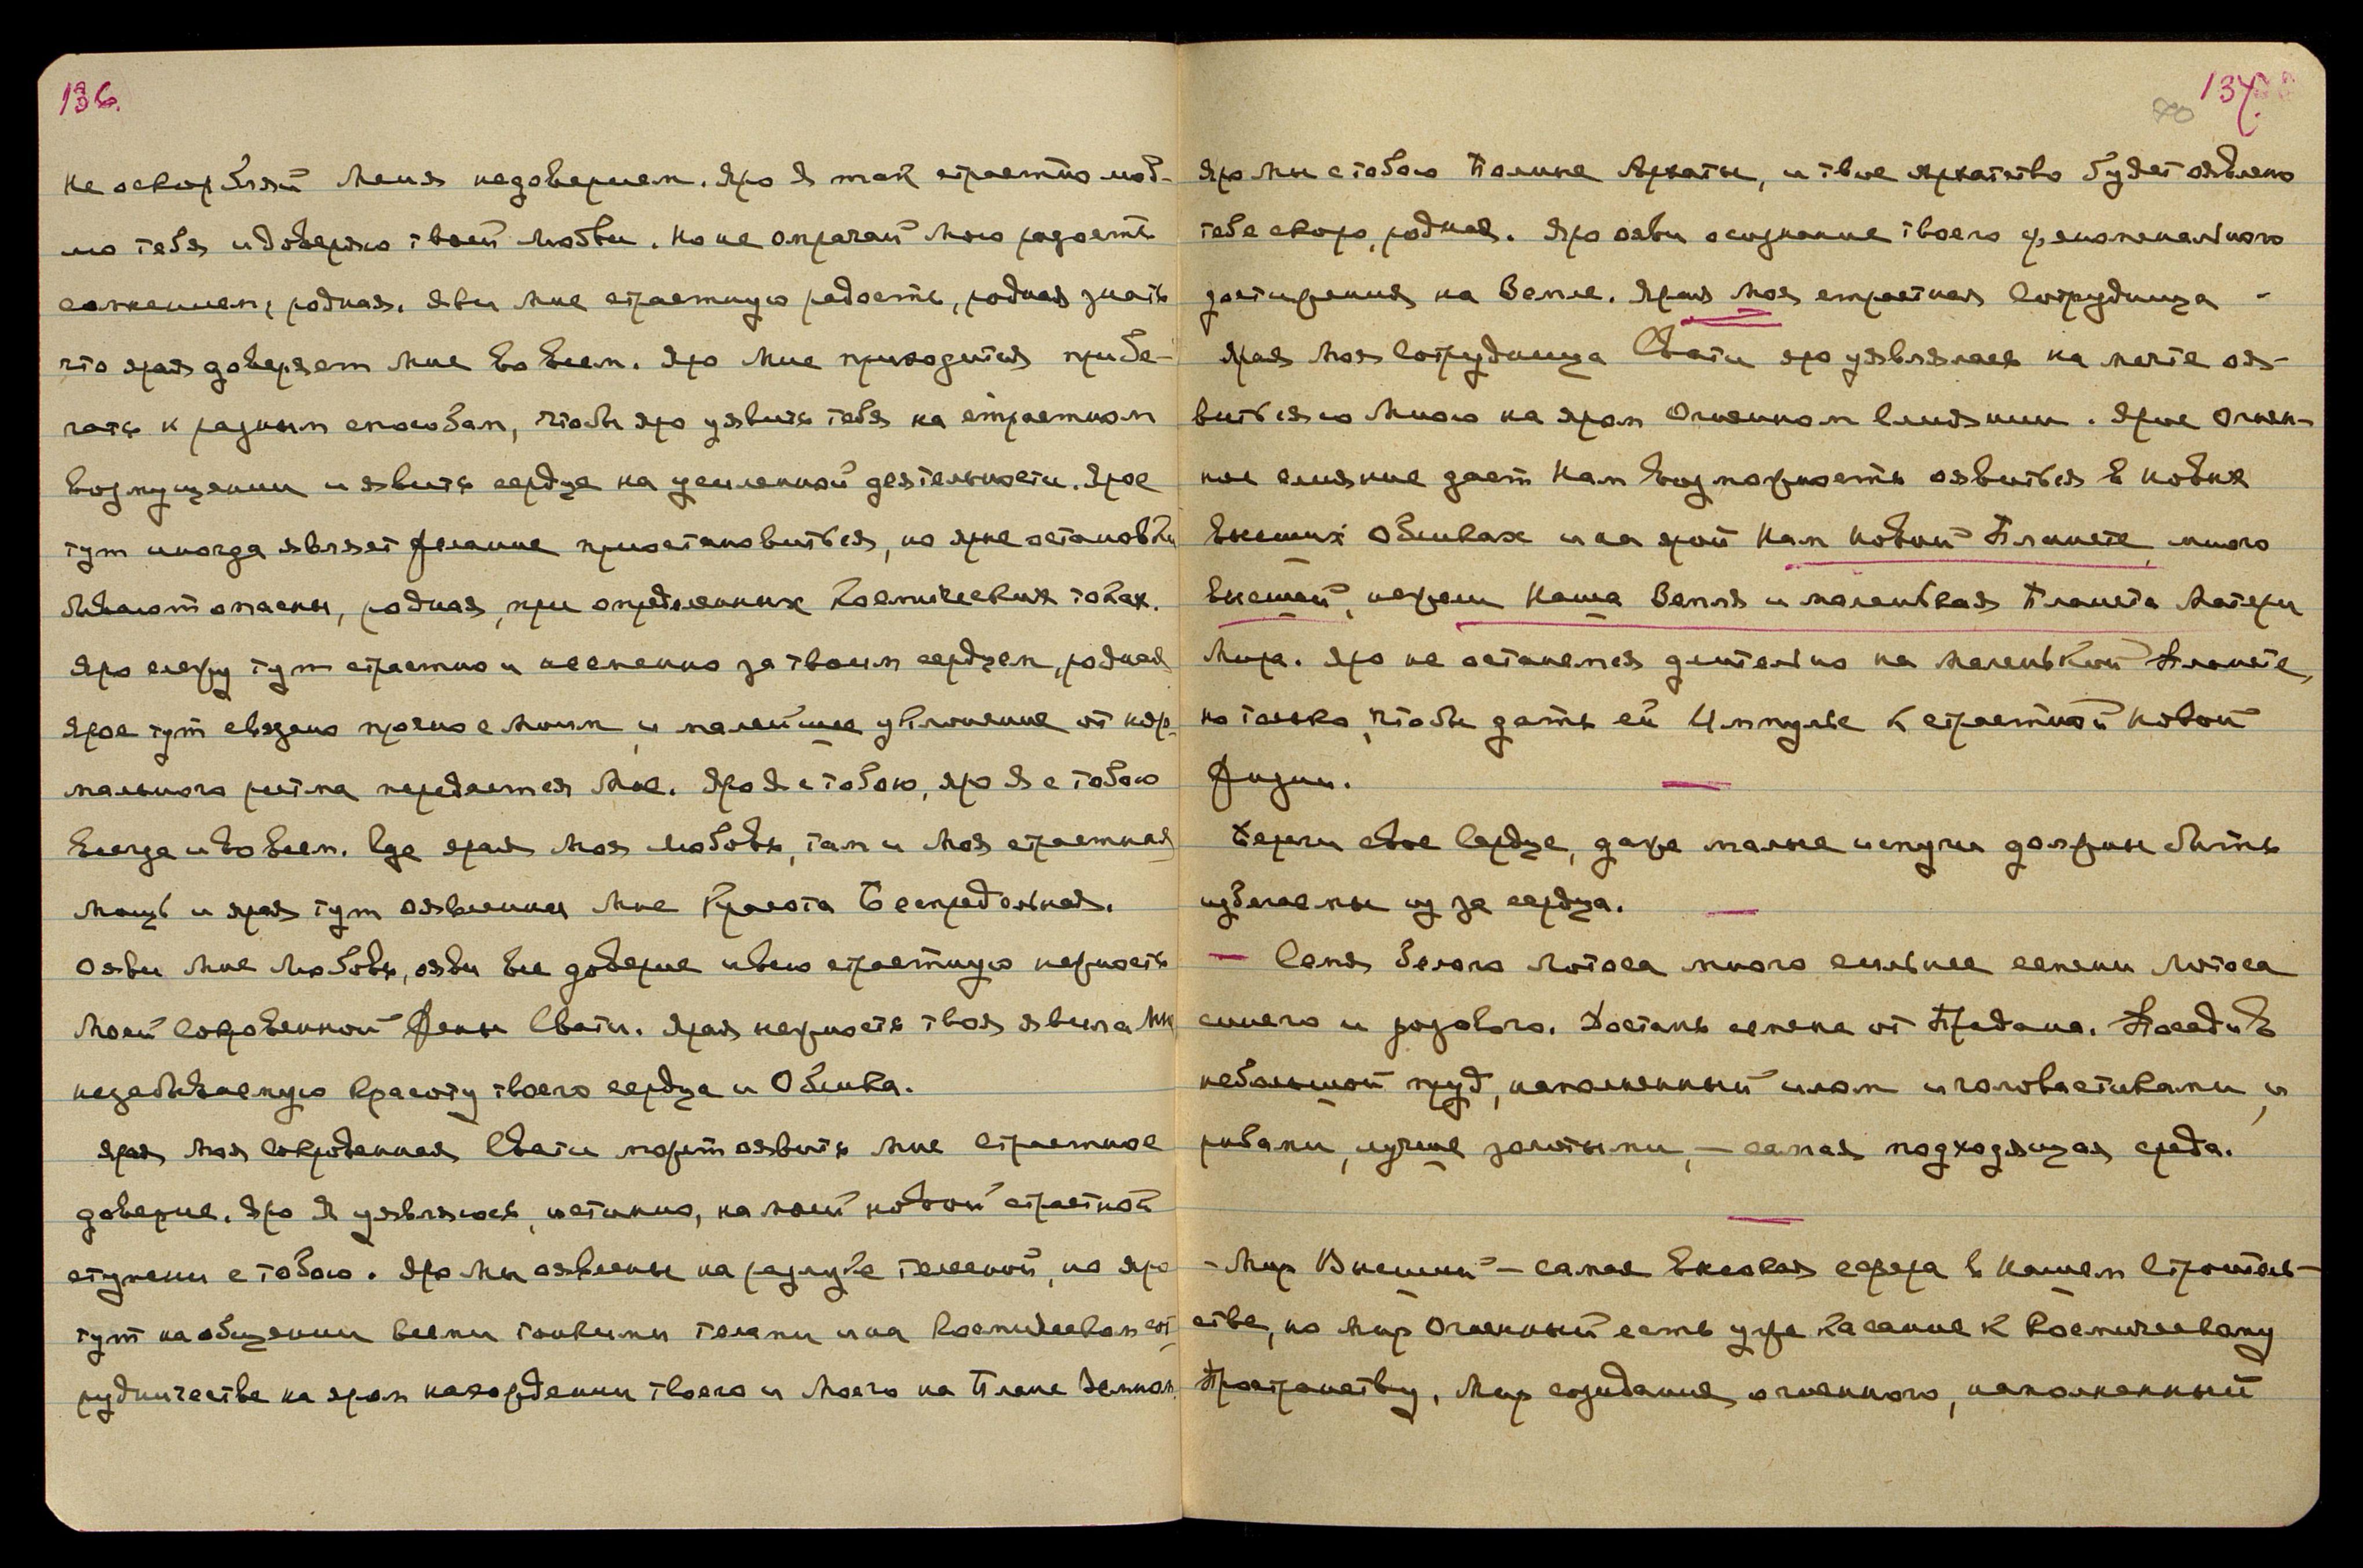 136.
не оскорбляй Меня недоверием. Яро Я так страстно люб-
лю тебя и доверяю твоей Любви. Но не омрачай Мою радость
сомнением, родная. Яви Мне страстную радость, родная знать
что ярая доверяет Мне во всем. Яро Мне приходится прибе-
гать к разным способам, чтобы яро уявить тебя на страстном
возмущении и явить сердце на усиленной деятельности. Ярое
тут иногда являет желание приостановиться, но ярые остановки
бывают опасны, родная, при определенных Космических токах.
Яро слежу тут страстно и несменно за твоим сердцем, родная
Ярое тут связано прочно с Моим и малейшее уклонение от нор-
мального ритма передается Мне. Яро Я с тобою, яро Я с тобою
всегда и во всем. Где ярая Моя Любовь, там и Моя страстная
Мощь и ярая тут оявленная Мне Красота Беспредельная.
Ояви Мне Любовь, ояви все доверие и всю страстную нежность
Моей Сокровенной Жены Свати. Ярая нежность твоя явила Мне
незабываемую Красоту твоего сердца и Облика.
Ярая Моя Сокровенная Свати может оявить Мне Страстное
доверие. Яро Я уявляюсь, истинно, на моей новой страстной
ступени с тобою. Яро Мы оявлены на разлуке телесной, но яро
тут на общении всеми тонкими телами и на Космическом сот-
рудничестве на яром нахождении твоего и Моего на Плане Земном.
137.
70
Яро Мы с тобою Полные Архаты, и твое Архатство будет оявлено
тебе скоро, родная. Яро ояви осознание твоего феноменального
достижения на Земле. Ярая Моя страстная Сотрудница -
Ярая Моя Сотрудница Свати яро уявлялась на мечте оя-
виться со Мною на яром Огненном Слиянии. Ярое Огнен-
ное слияние дает Нам возможность оявиться в новых
высших Обликах и на ярой Нам Новой Планете, много
высшей, нежели Наша Земля и маленькая Планета Матери
Мира. Яро не останемся длительно на маленькой Планете,
но только, чтобы дать ей Импульс к страстной новой
жизни.
Береги свое Сердце, даже малые испуги должны быть
избегаемы из за сердца.
— Семя белого Лотоса много сильнее семени Лотоса
синего и розового. Достань семена от Прадана. Посади в
небольшой пруд, наполненный илом и головастиками, и
рыбами, лучше золотыми, — самая подходящая среда.
- Мир Внешний - самая высокая сфера в Нашем Строитель-
стве, но Мир Огненный есть уже касание к Космическому
Пространству, Мир созидания огненного, наполненный